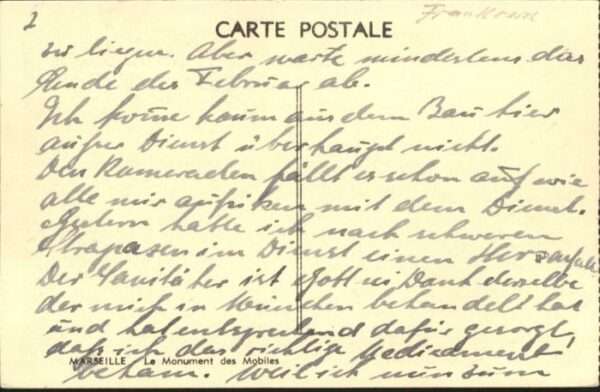 2
Frankreich
CARTE POSTALE
zu liegen. Aber warte mindestens das
Ende des Februar ab.
Ich komme kaum aus dem Bau hier
außer Dienst überhaupt nicht.
Den Kameraden fällt es schon auf wie
alle mir mit dem Dienst.
Gestern hatte ich nach schweren
Strapazen im Dienst einen Herzanfall.
Der Sanitäter ist Gott sei Dank derselbe
der mich in München behandelt hat
und hat entsprechend dafür gesorgt,
daß ich das richtige Medikament
bekam. Weil ich nun zum
MARSEILLE Le Monument des Mobiles